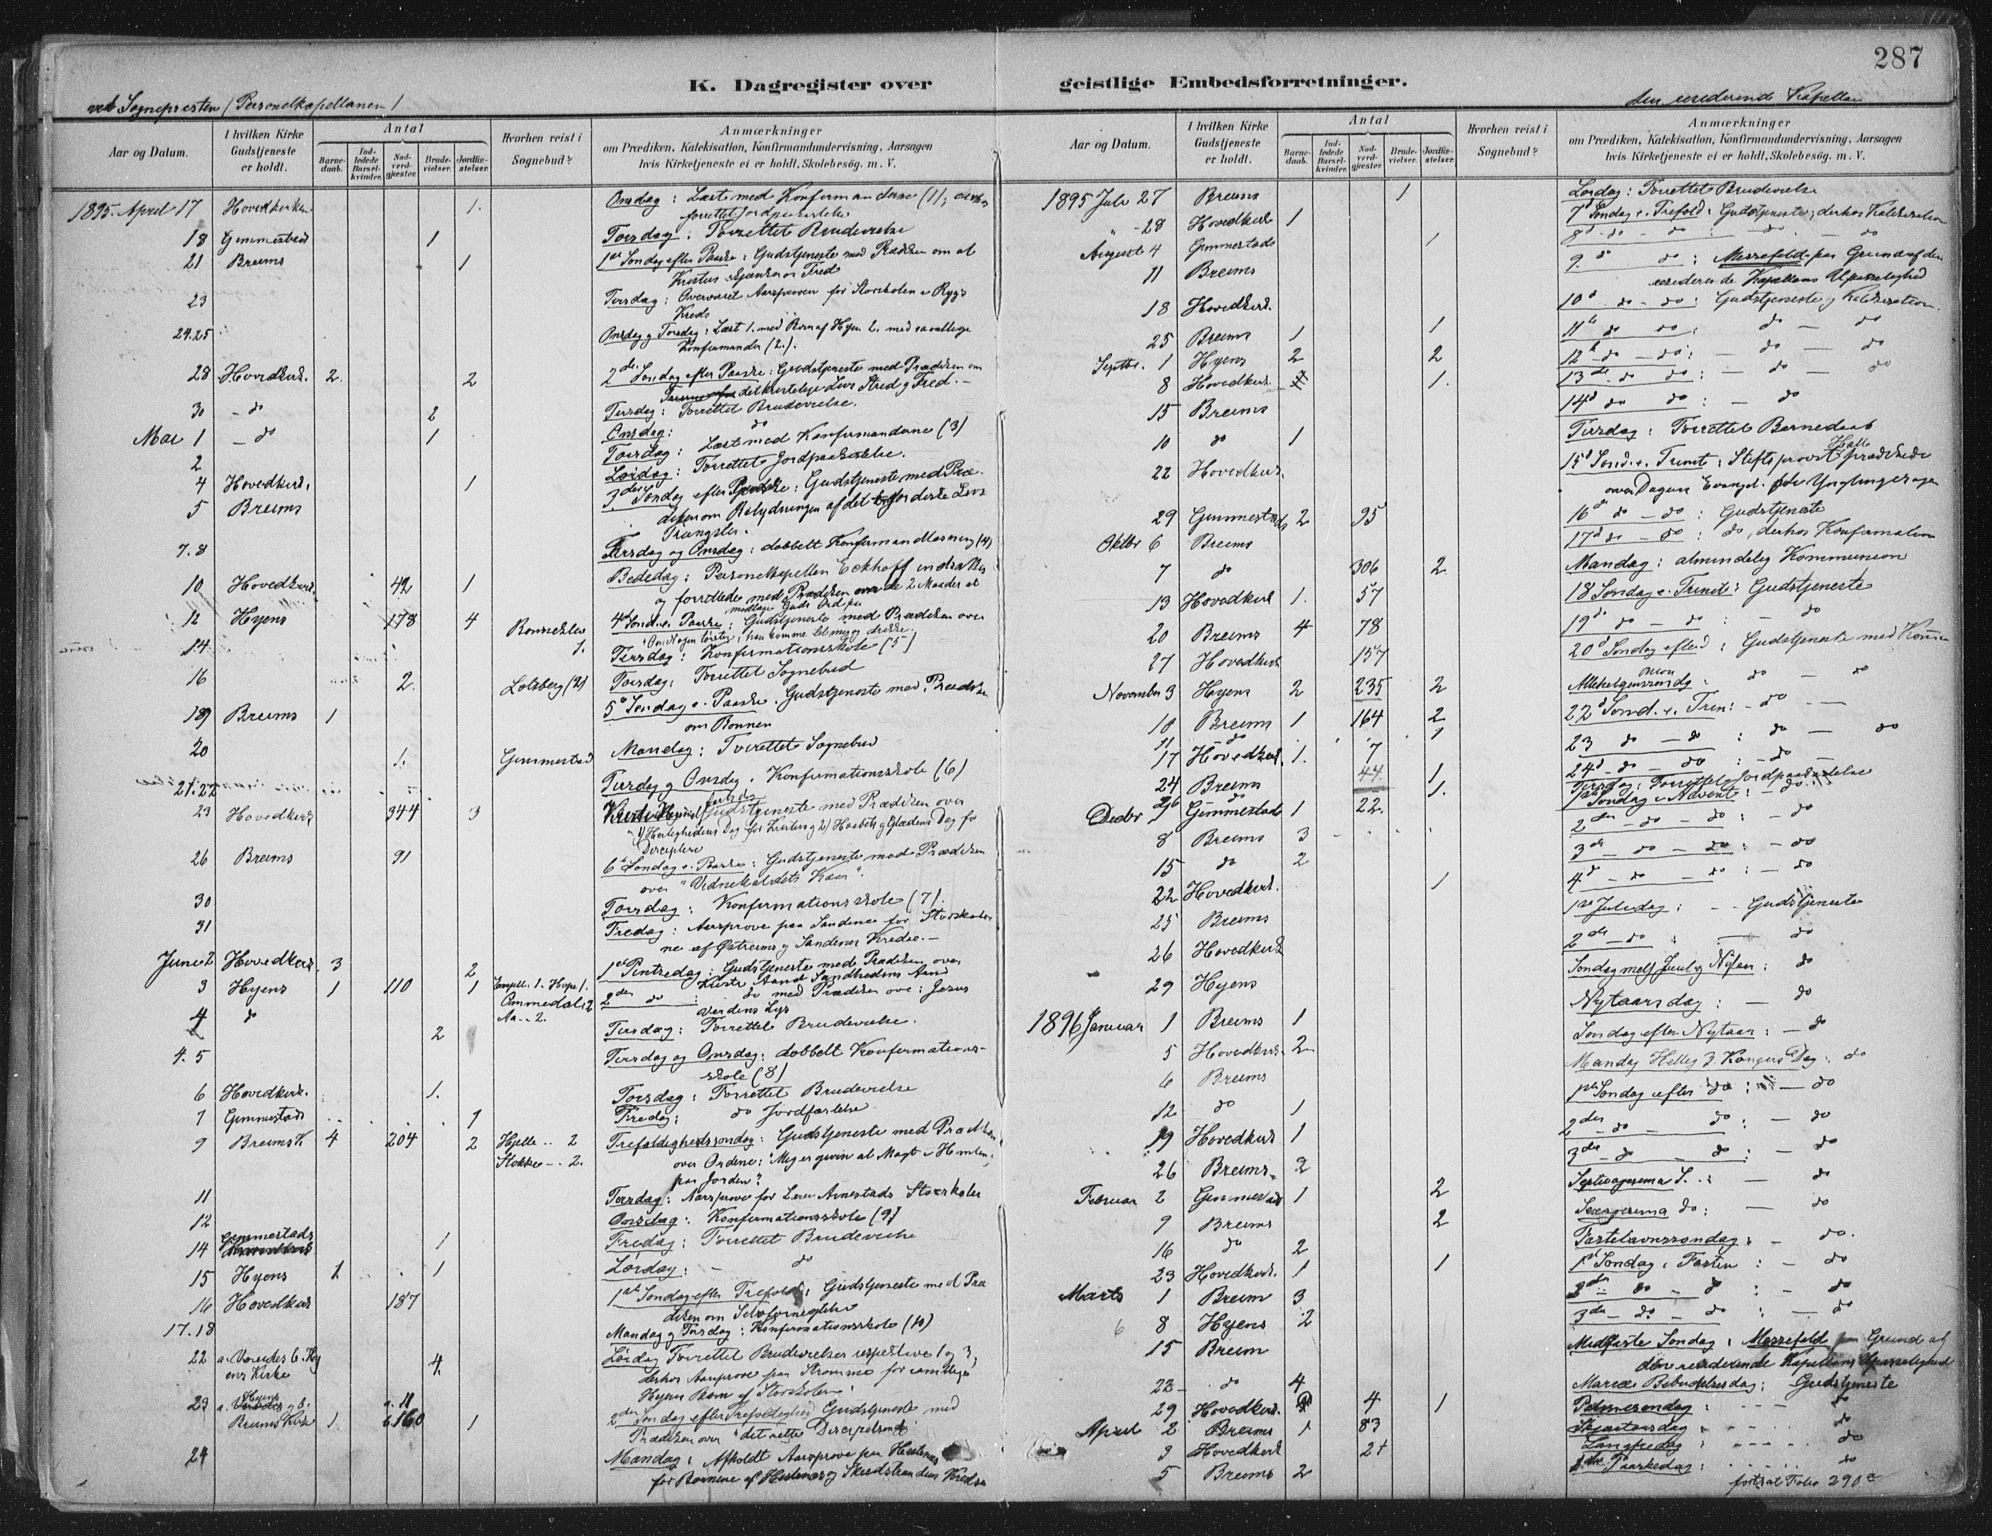 287
K. Dagregister over geistlige Embedsforretninger.
ved Sognepresten / Personelkapellanen /
den residerende Kapellan
Aar og Datum.
I hvilken Kirke Gudstjeneste er holdt.
Antal
Barnedaab.
Indledede Barselkvinder.
Nadverdgjester.
Brudevielser.
Jordfæstelser.
Hvorhen reist i Sognebud?
Anmærkninger
om Prædiken, Katekisation, Konfirmandundervisning, Aarsagen
hvis Kirketjeneste ei er holdt, Skolebesøg. m. V.
1895 April 17 Hovedkirken 1. Onsdag: Læst med Konfirmanderne (1);
forrettet Jordpaakastelse
18 Gimmestad 1 Torsdag: Forrettet Brudevielse
21 Breims 1 1ste Søndag efter Paaske: Gudstjeneste med Prædiken om at
Kristus skjænker os Fred
23 Tirsdag: Overværet Aarsprøven for Storskolen i Rygs
Kreds
24.25 Onsdag og Torsdag: Læst 1. med Børn af Hyen 2. med samtlige
Konfirmander (2.).
28 Hovedkirk. 2. 2 2den Søndag efter Paaske: Gudstjeneste med Prædiken om
det kristelige Livs Strid og Fred. —
30 - do 2 Tirsdag: Forrettet Brudevielse.
Mai 1 - do 1 Onsdag: do
2 Torsdag: Læst med Konfirmanderne (3)
4 Hovedkirk. 1 Lørdag: Forrettet Jordpaakastelse.
5 Breims 3die Søndag efter Paaske: Gudstjeneste med Præ-
diken om Betydningen af det jordiske Livs
Trængsler.
7.8 Tirsdag og Onsdag: dobbelt Konfirmandlæsning (4)
10 Hovedkirk. 42 1 Bededag: Personelkapellan Eckhoff
12 Hyens 178 4 4de Sønd. e. Paaske: Gudstjeneste med Prædiken over
14 Tirsdag: Konfirmationsskole (5)
16 2. Lotsberg (2) Torsdag: Forrettet Sognebud
19 Breims 1 5te Søndag e. Paaske. Gudstjeneste med Prædiken
om Bønnen
20 1. Gimmestad Mandag: Forrettet Sognebud
21.22 Tirsdag og Onsdag. Konfirmationsskole (6)
23 Hovedkirk. 344 3 Gudstjeneste med Prædiken over
26 Breims 91 6te Søndag e. Paaske: Gudstjeneste med Prædiken
over "Vidnekaldets Kaar".
30 Torsdag: Konfirmationsskole (7).
31 Fredag: Aarsprøve paa Sandene for Storskoler
ne af Østreims og Sandenes Kredse. —
Juni 2 Hovedkirk. 3 2 1ste Pintsedag: Gudstjeneste med Prædiken over
3 Hyens 1 110 1 Ommedal 2 2den do: do med Prædiken over: Jesus
Verdens Lys
4 do 2 Tirsdag: Forrettet Brudevielse.
4.5 Tirsdag og Onsdag: dobbelt Konfirmations-
skole (8)
6 Hovedkirk. 1. Torsdag: Forrettet Brudevielse
7 Gimmestads 1 Fredag: do Jordfæstelse
9 Breims K. 4 204 2 Hjelle .. 2 Trefoldighedssøndag: Gudstjeneste med Prædiken
over Ordene: "Mig er given al Magt i Himlen
paa Jorden"
11 Tirsdag: Aarsprøve for Storskoler
12 Onsdag: Konfirmationsskole (9)
14 Gimmestads 1 Fredag: Forrettet Brudevielse
15 Hyens 1 1 Lørdag: - do
16 Hovedkirk 187 1ste Søndag efter Trefold.: Gudstjeneste med Præ
diken om Selvfornegtelse
17.18 Mandag og Tirsdag: Konfirmationsskole (10)
22 4. Lørdag Forrettet Brudevielser respektive 1 og 3;
23 Breims Kirke 1. 160 1 2den Søndag efter Trefoldighed Gudstjeneste med
Prædiken over "det rette Discipelsind"
24 Mandag: Afholdt Aarsprøve paa Hestenes
for Børnene af Hestenes og Skredstrandens Kredse
Aar og Datum.
I hvilken Kirke Gudstjeneste er holdt.
Antal
Barnedaab.
Indledede Barselkvinder.
Nadverdgjester.
Brudevielser.
Jordfæstelser.
Hvorhen reist i Sognebud?
Anmærkninger
om Prædiken, Katekisation, Konfirmandundervisning, Aarsagen
hvis Kirketjeneste ei er holdt, Skolebesøg. m. V.
1895 Juli 27 Breims 1 Lørdag: Forrettet Brudevielse
28 Hovedkirk 1 7de Søndag e. Trefold: Gudstjeneste; derhos Katekisation
August 4 Gimmestads 1 8de - do - do: - do
11 Breims 9. do: Messefald paa Grund af den
residerende Kapellans Upasselighed
18 Hovedkirk. 10de - do - do: Gudstjeneste og Katekisation.
25 Breims 1 1 11te do do: do — do
Septbr. 1 Hyens 2 2 12te do - do: - do — do
8 Hovedkirk. 1. 13de do - do: - do — do
15 Breims 14de do do: - do
10 do 1 Tirsdag: Forrettet Barnedaab
22 Hovedkirk. 15de Sønd. e. Trinit: Stiftsprovst Halle prædikede
over Dagens Evangel.
29 Gimmestads 2 95 16de do - do: Gudstjeneste
Oktbr 6 Breims 17de do - do: do, derhos Konfirmation
7 do 306 2 Mandag: almindelig Kommunion
13 Hovedkirk 1. 57 18 Søndag e. Trinit: Gudstjeneste
20 Breims 4 78 19de do - do: - do
27 Hovedkirk 157 20de Søndag efter d: Gudstjeneste med
November 3 Hyens 2 235 2 Allehelgenssøndg. do - do
10 Breims 1 164 2 22de Sønd. e. Trin: - do —
11 do 1
17 Hovedkirk. 1. 7 23 do - do: do - do
24 Breims 44 1 24de - do - do: - do
26 do 1. Tirsdag: Forrettet Jordpaakastelse
Decbr 1 Gimmestads 1 22. 1ste Søndag i Advent: - do
8 Breims 3 2den - do - do: - do
15 do 2 3die - do - do: - do
22 Hovedkirk. 1 4de - do - do: - do
25 Breims 1ste Juledag: - - Gudstjeneste
26 Hovedkirk 2den - do - do
29 Hyens Søndag mell. Juul og Nytaar: do
1896 Januar 1 Breims 1 Nytaarsdag: — do
5 Hovedkirk. 2 Søndag efter Nytaar: — do
6 Breims Mandag Hellig 3 Kongers Dag: do
12 do 1 1ste Søndag efter do: — do
19 Hovedkirk 1 2den - do - do: - do
26 Breims. 2 3die - do - do: - do
Februar 2 Gimmestad 1 2 Septuagesima S.: — do
9 Breims 2 Sexagesima do: — do
16 do 2 Fastelavnssøndag: - do.
23 Hovedkirk. 1 1 1ste Søndag i Fasten: - do
Marts 1 Breim 3 2den - do - do: - do
8 Hyens 2 3die - do - do: - do
15 Breim Midfaste Søndag: Messefald paa Grund af
den residerende Kapellans Upasselighed
22 - do 4 Mariæ Bebudelsesdag: Gudstjeneste
29 Hovedkirk. 4 1 Palmesøndag: - - - - do
April 2 Breims 1 83 Skjærtorsdag - - - - do
3 Hovedkirk 21 Langfredag - - - - do
5 Breims 2 1ste Paaskedag: - - - - do
fortsat Folio 290